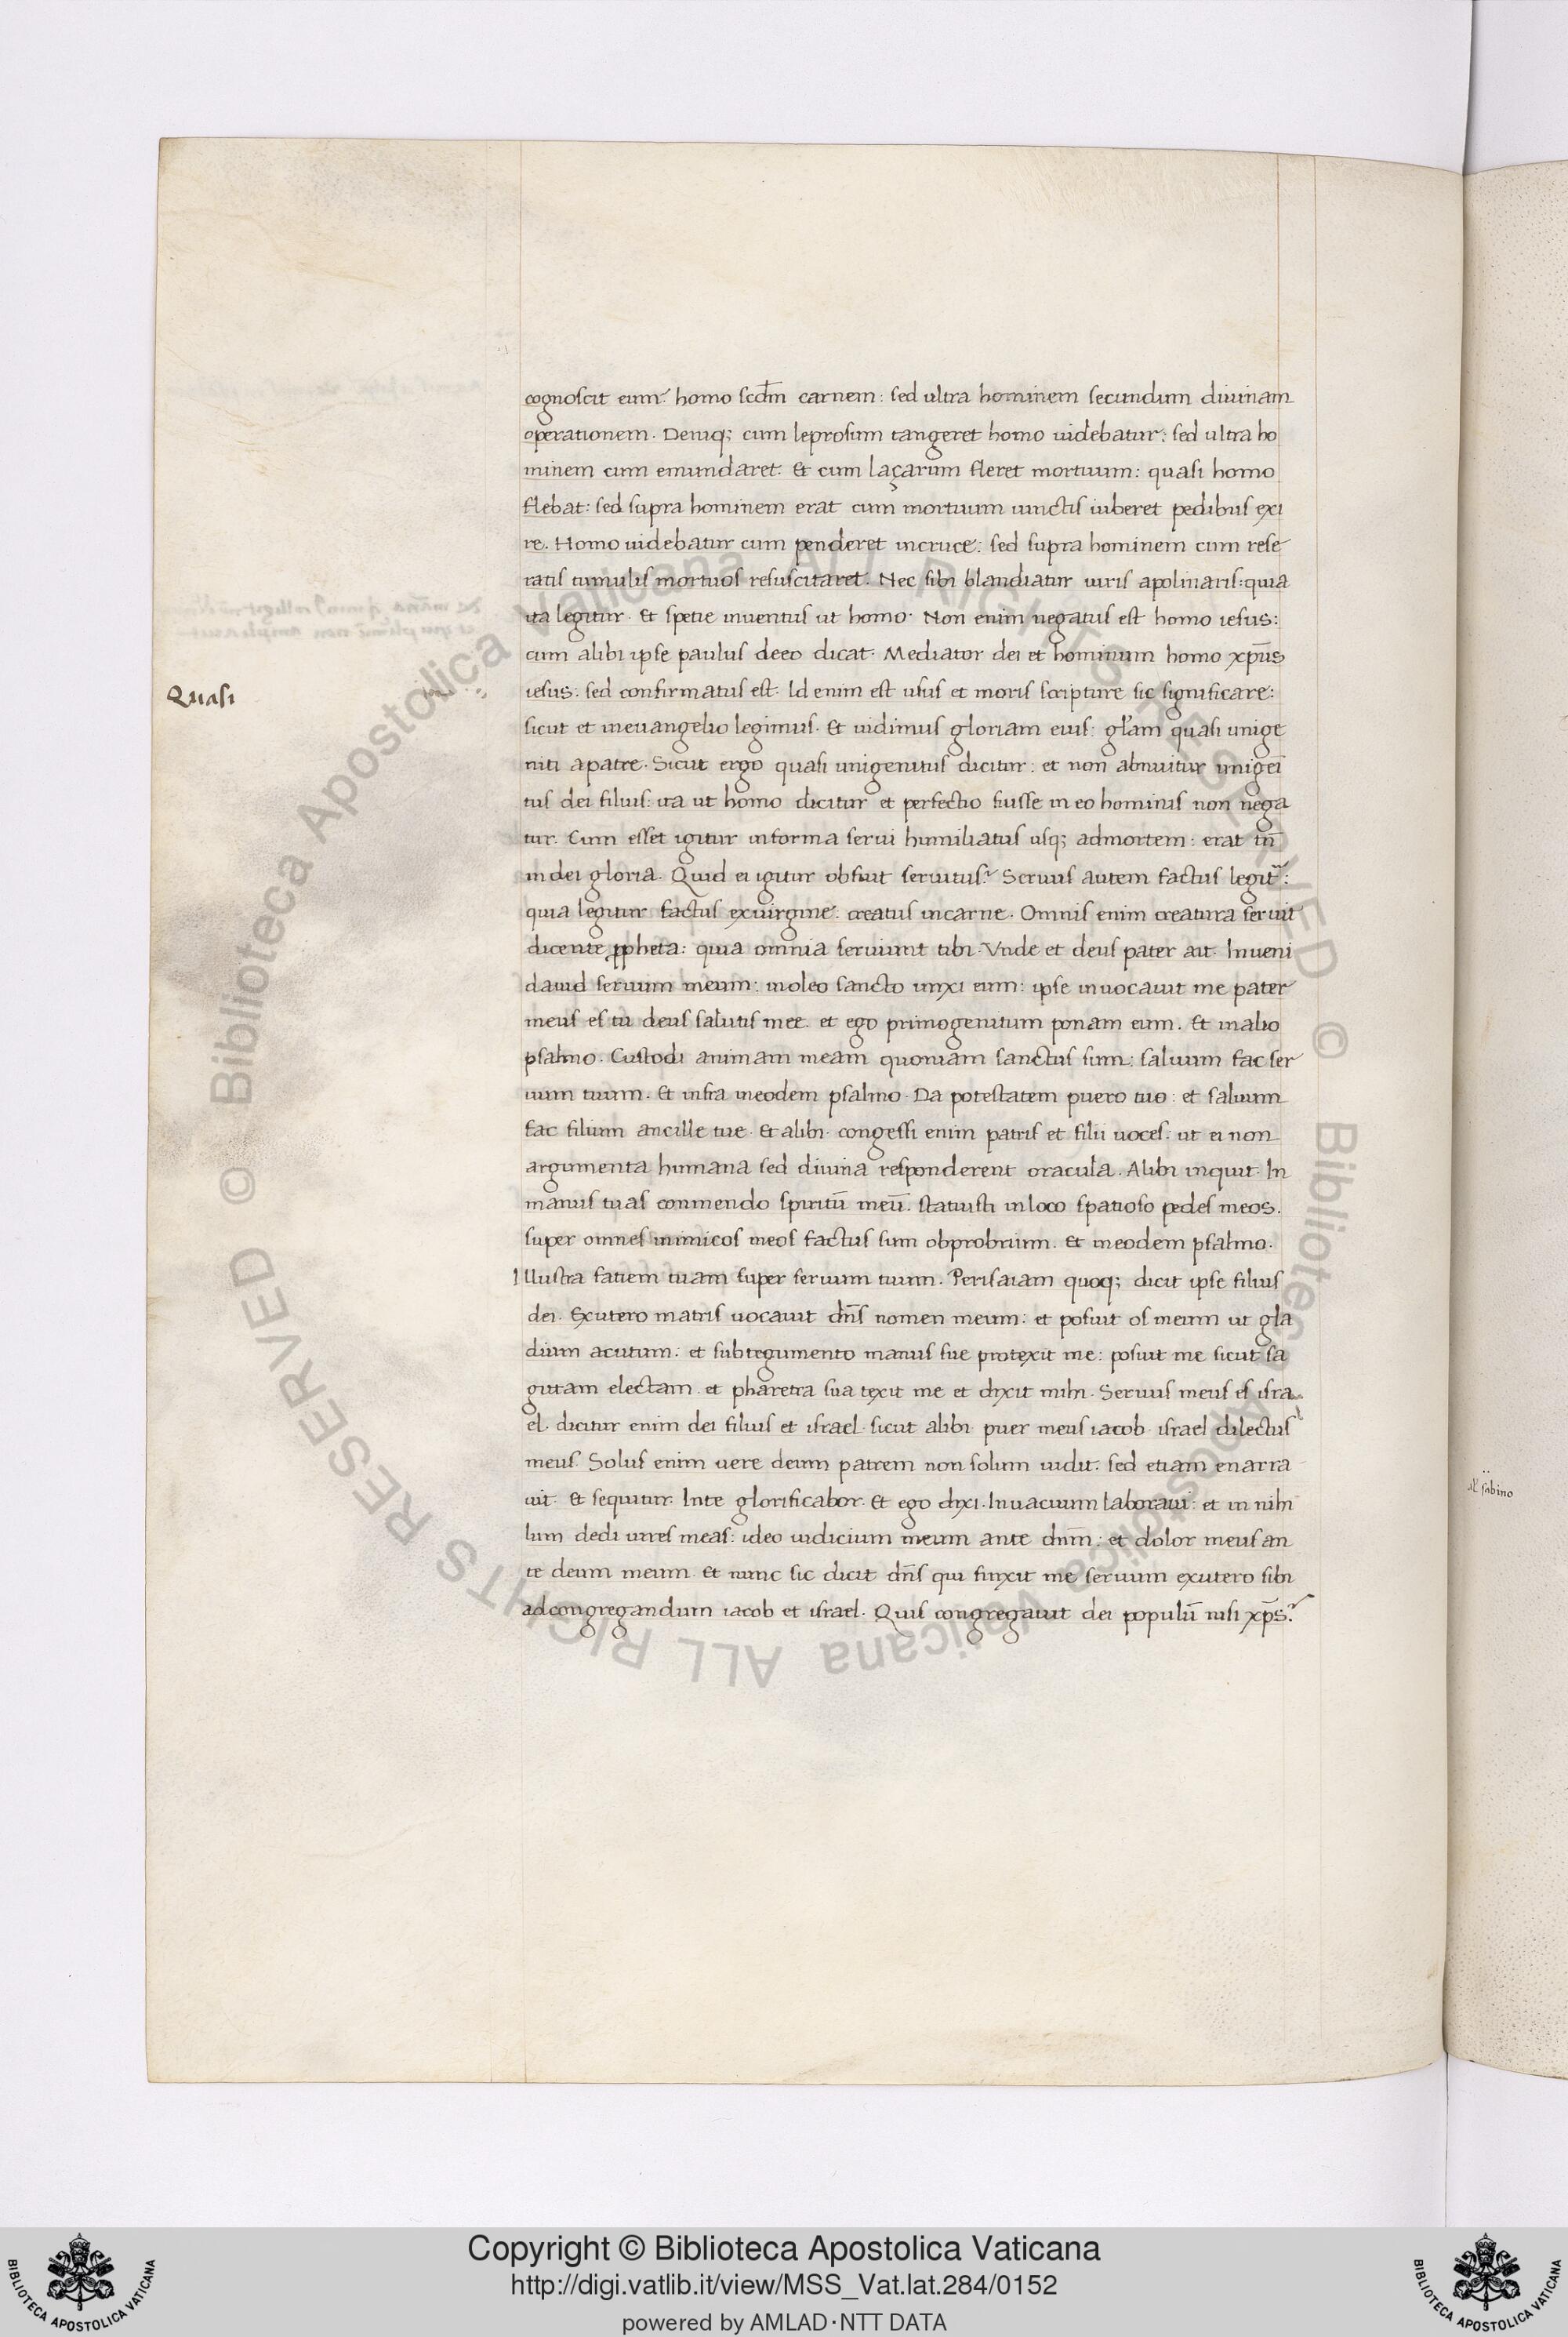 cognoscit eum? homo scdm carnem: sed ultra hominem secundum diuinam
operationem. Deniq; cum leprosum tangeret homo uidebatur: sed ultra ho
minem cum emundaret. Et cum laçarum fleret mortuum: quasi homo
flebat: sed supra hominem erat cum mortuum uinctis iuberet pedibus exi
re. Homo uidebatur cum penderet incruce: sed supra hominem cum rese
ratis tumulis mortuos resuscitaret. Nec sibi blandiatur uiris apolinaris: quia
ita legitur. Et spetie inuentus ut homo. Non enim negatus est homo iesus:
cum alibi ipse paulus deeo dicat. Mediator dei et hominum homo xp̄us
Quasi
iesus: sed confirmatus est. Id enim est usus et moris scripture sic significare:
sicut et ineuangelio legimus. Et uidimus gloriam eius: gl'am quasi unige
niti apatre. Sicut ergo quasi unigenitus dicitur: et non abnuitur unigēi
tus dei filius: ita ut homo dicitur et perfectio fuisse in eo hominis non nega
tur. Cum esset igitur informa serui humiliatus usq; admortem: erat tn̄
in dei gloria. Quid ei igitur obfuit seruitus? Seruus autem factus legit᷑:
quia legitur factus exuirgine: creatus incarne. Omnis enim creatura seruit
dicente ꝓpheta: quia omnia seruiunt tibi. Vnde et deus pater ait. Inueni
dauid seruum meum: inoleo sancto unxi eum: ipse inuocauit me pater
meus es tu deus salutis mee. et ego primogenitum ponam eum. Et inalio
psalmo. Custodi animam meam quoniam sanctus sum: saluum fac ser
uum tuum. Et infra ineodem psalmo. Da potestatem puero tuo: et saluum
fac filium ancille tue. Et alibi. congessi enim patris et filii uoces: ut ei non
argumenta humana sed diuina responderent oracula. Alibi inquit. In
manus tuas commendo spiritū meū. statuisti inloco spatioso pedes meos.
super omnes inimicos meos factus sum obprobrium. Et ineodem psalmo.
Illustra fatiem tuam super seruum tuum. Perisaiam quoq; dicit ipse filius
dei. Exutero matris uocauit dn̄s nomen meum: et posuit os meum ut gla
dium acutum: et subtegumento manus sue protexit me: posuit me sicut sa
gittam electam. et pharetra sua texit me et dixit mihi. Seruus meus es isra
el. dicitur enim dei filius et israel. sicut alibi. puer meus iacob. israel dilectus
meus. Solus enim uere deum patrem non solum uidit: sed etiam enarra
uit. Et sequitur. Inte glorificabor. Et ego dixi. Inuacuum laboraui: et in nihi
lum dedi uires meas: ideo iudicium meum ante dnm̄: et dolor meus an
te deum meum. Et nunc sic dicit dn̄s qui finxit me seruum exutero sibi
adcongregandum iacob et israel. Quis congregauit dei populū nisi xp̄s?
sabino
© Biblioteca Apostolica Vaticana ALL RIGHTS RESERVED © Biblioteca Apostolica Vaticana ALL RIGHTS RESERVED
Copyright © Biblioteca Apostolica Vaticana
http://digi.vatlib.it/view/MSS_Vat.lat.284/0152
powered by AMLAD·NTT DATA
BIBLIOTECA APOSTOLICA VATICANA
BIBLIOTECA APOSTOLICA VATICANA